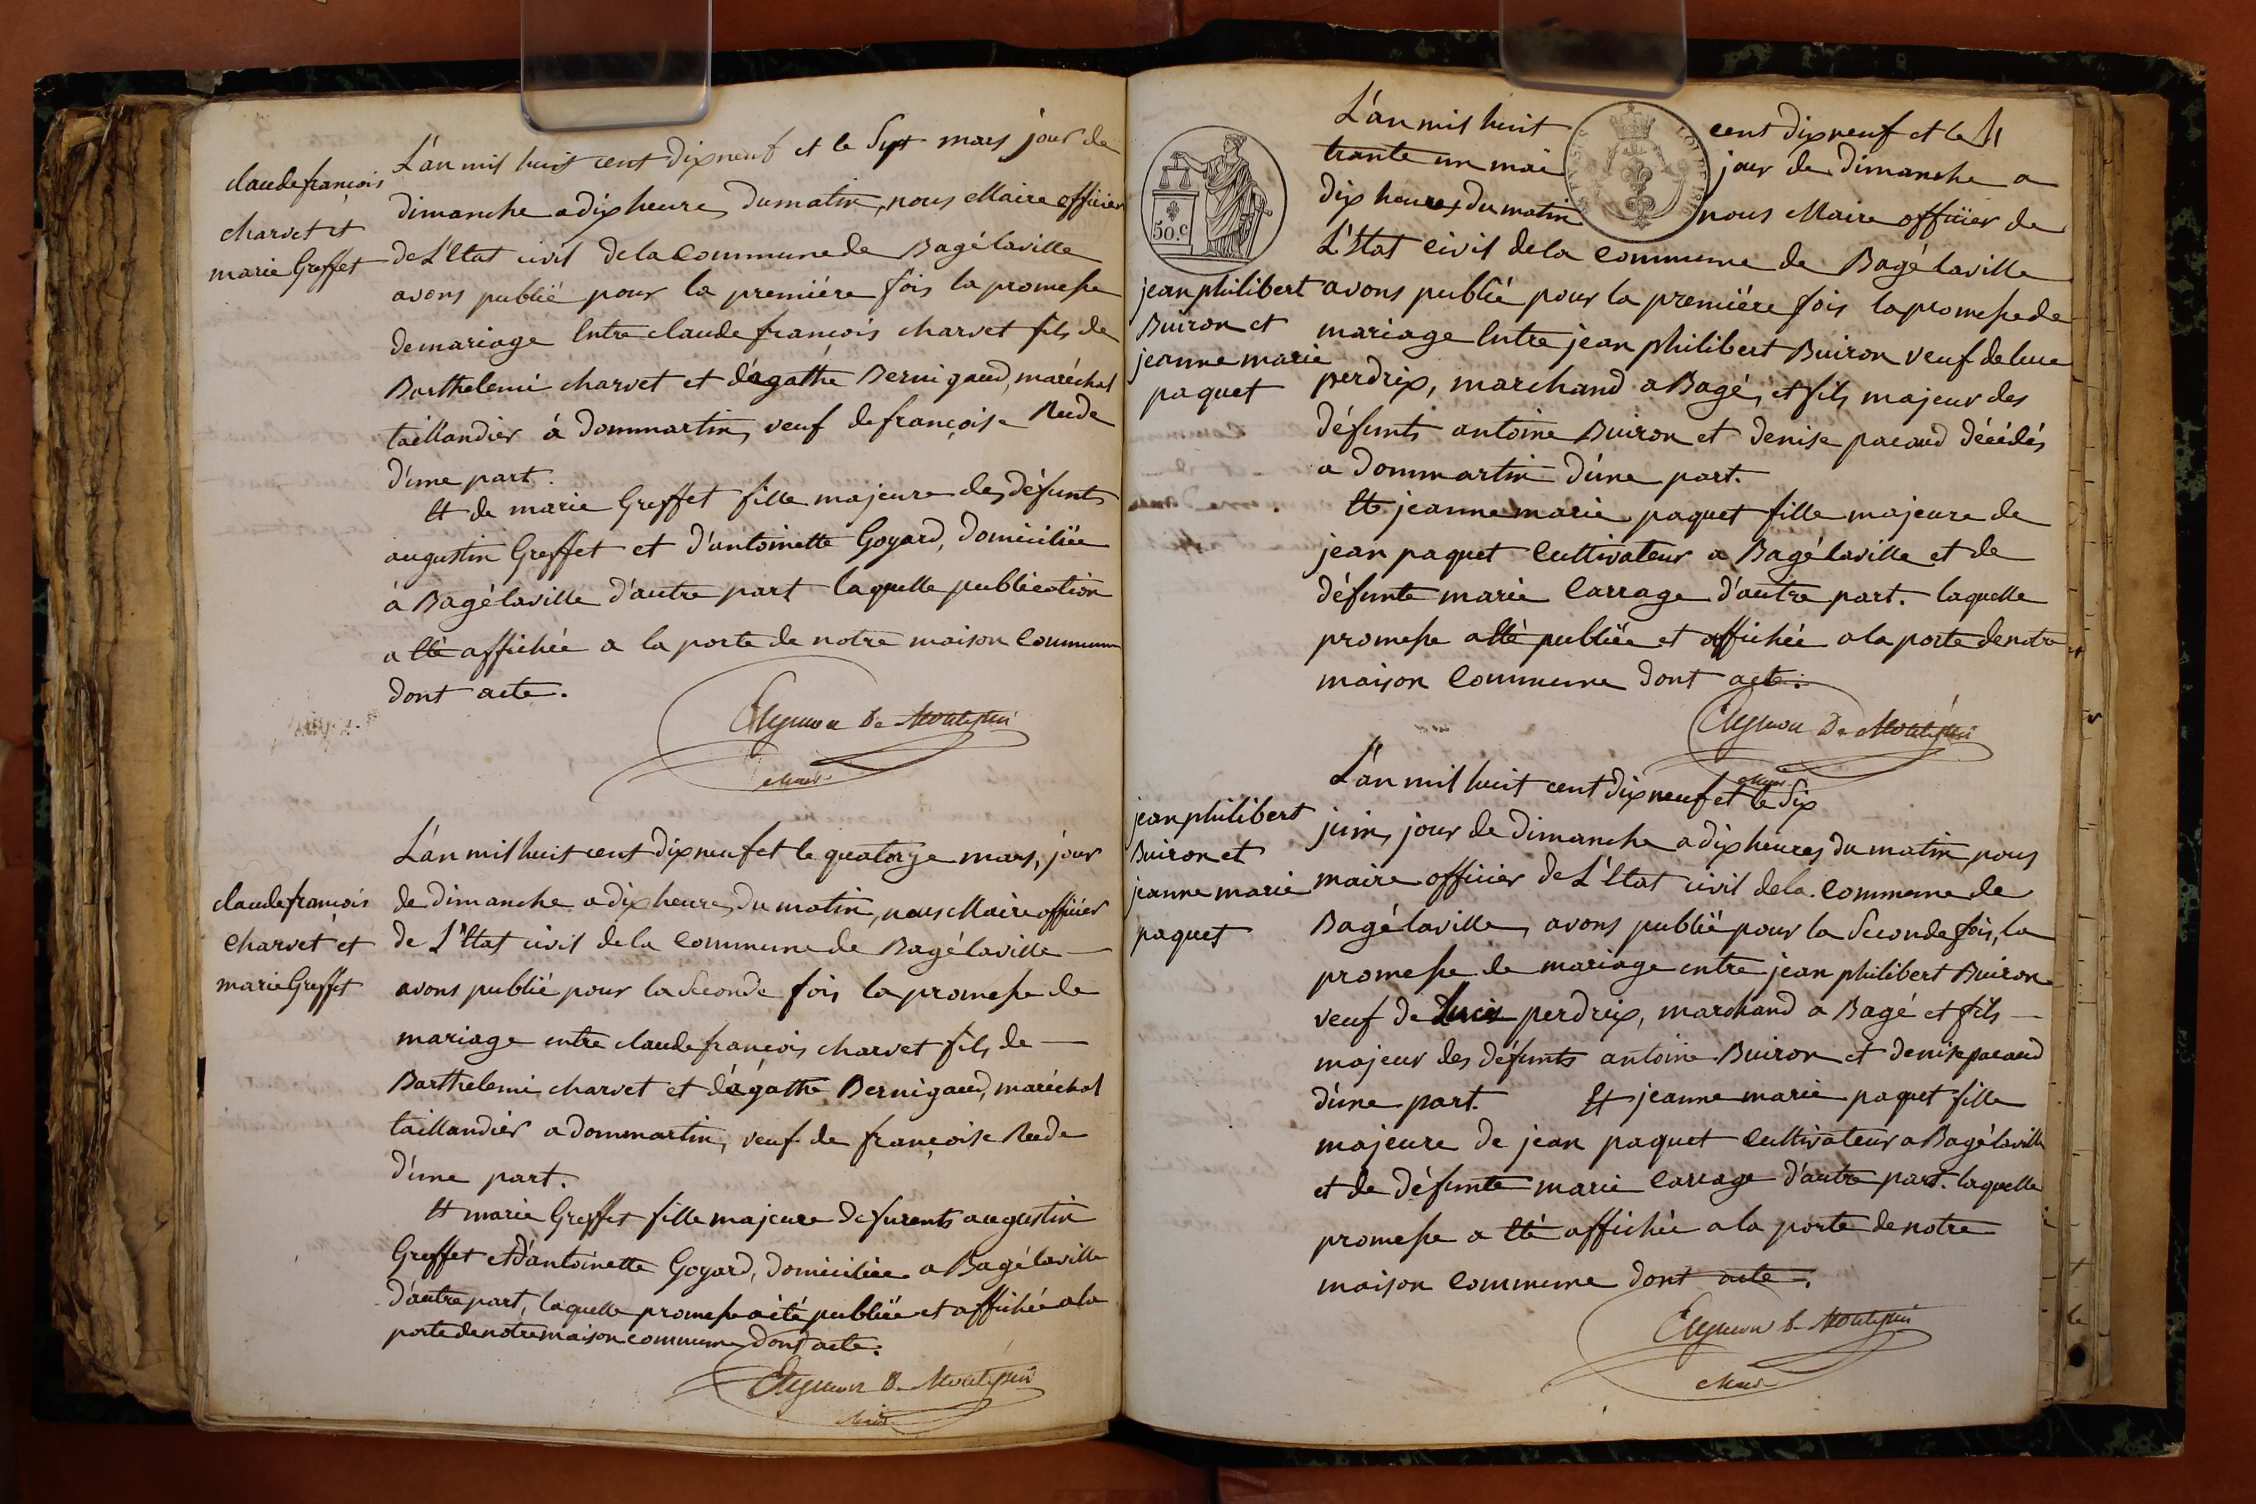 claude francois
charvet et
marie Greffet
L'an mil huit cent dix neuf et le Sept mars jour de
dimanche a dix heures du matin, nous Maire officier
de L'Etat civil de la Commune de Bagélaville
avons publié pour la premiére fois la promesse
de mariage Entre claude francois charvet fils de
Barthelemi charvet et d'agathe Bernigaud, maréchal
taillandier à dommartin, veuf de françoise Rude
d'une part.
Et de marie Greffet fille majeure des défunts
augustin Greffet et d'antoinette Goyard, domiciliée
à Bagélaville d'autre part laquelle publication
a Eté affichée a la porte de notre maison Commune
dont acte.
Maire
claude francois
charvet et
marie Greffet
L'an mil huit cent dix neuf et le quatorze mars, jour
de dimanche a dix heures du matin, nous Maire officier
de L'Etat civil de la Commune de Bagélaville
avons publié pour la Seconde fois la promesse de
mariage entre claude francois charvet fils de
Barthelemi charvet et d'agathe Bernigaud, maréchal
taillandier a dommartin, veuf de françoise Rude
d'une part.
Et marie Greffet fille majeure de furents augustin
Greffet et d'antoinette Goyard, domiciliée a Bagélaville
d'autre part, laquelle promesse a été publiée et affichée a la
porte de notre maison commune dont acte.
Maire
50.c
L'an mil huit cent dix neuf et le
trante un mai jour de dimanche a
dix heures du matin nous Maire officier de
L'Etat civil de la Commune de Bagélaville
jean philibert
Buiron et
jeanne marie
paquet
avons publié pour la premiére fois la promesse de
mariage Entre jean philibert Buiron veuf de luce
perdrix, marchand a Bagé, et fils majeur des
défunts antoine Buiron et denise pacaud décédés
a dommartin d'une part.
Et jeanne marie paquet fille majeure de
jean paquet Cultivateur a Bagélaville et de
défunte marie Carrage d'autre part. laquelle
promesse a Eté publiée et affichée a la porte de notre
maison Commune dont acte.
Maire
jean philibert
Buiron et
jeanne marie
paquet
L'an mil huit cent dix neuf et le Six
juin, jour de dimanche a dix heures du matin, nous
maire officier de L'Etat civil de la Commune de
Bagélaville, avons publié pour la Seconde fois, la
promesse de mariage entre jean philibert Buiron
veuf de perdrix, marchand a Bagé et fils
majeur des défunts antoine Buiron et denise pacaud
d'une part. Et jeanne marie paquet fille
majeure de jean paquet Cultivateur a Bagélaville
et de défunte marie Carrage d'autre part. laquelle
promesse a Eté affichée a la porte de notre
maison Commune dont acte.
Maire